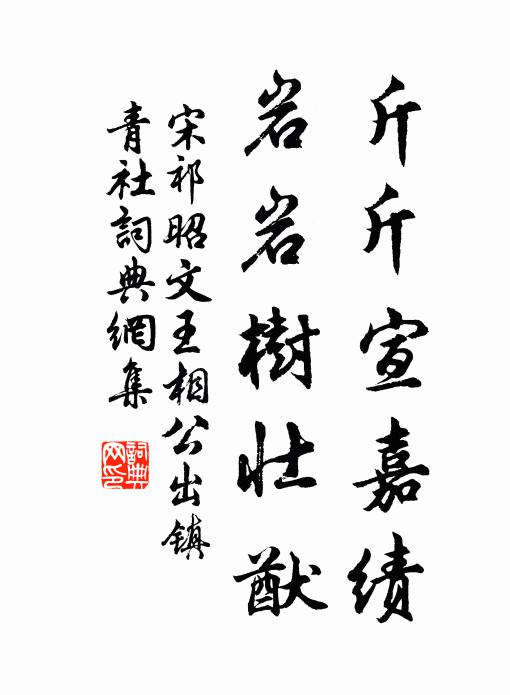 斤斤宣嘉绩
岩岩樹壮猷
宋祁昭文王相公出镇
青社詞典網集
詞典网印